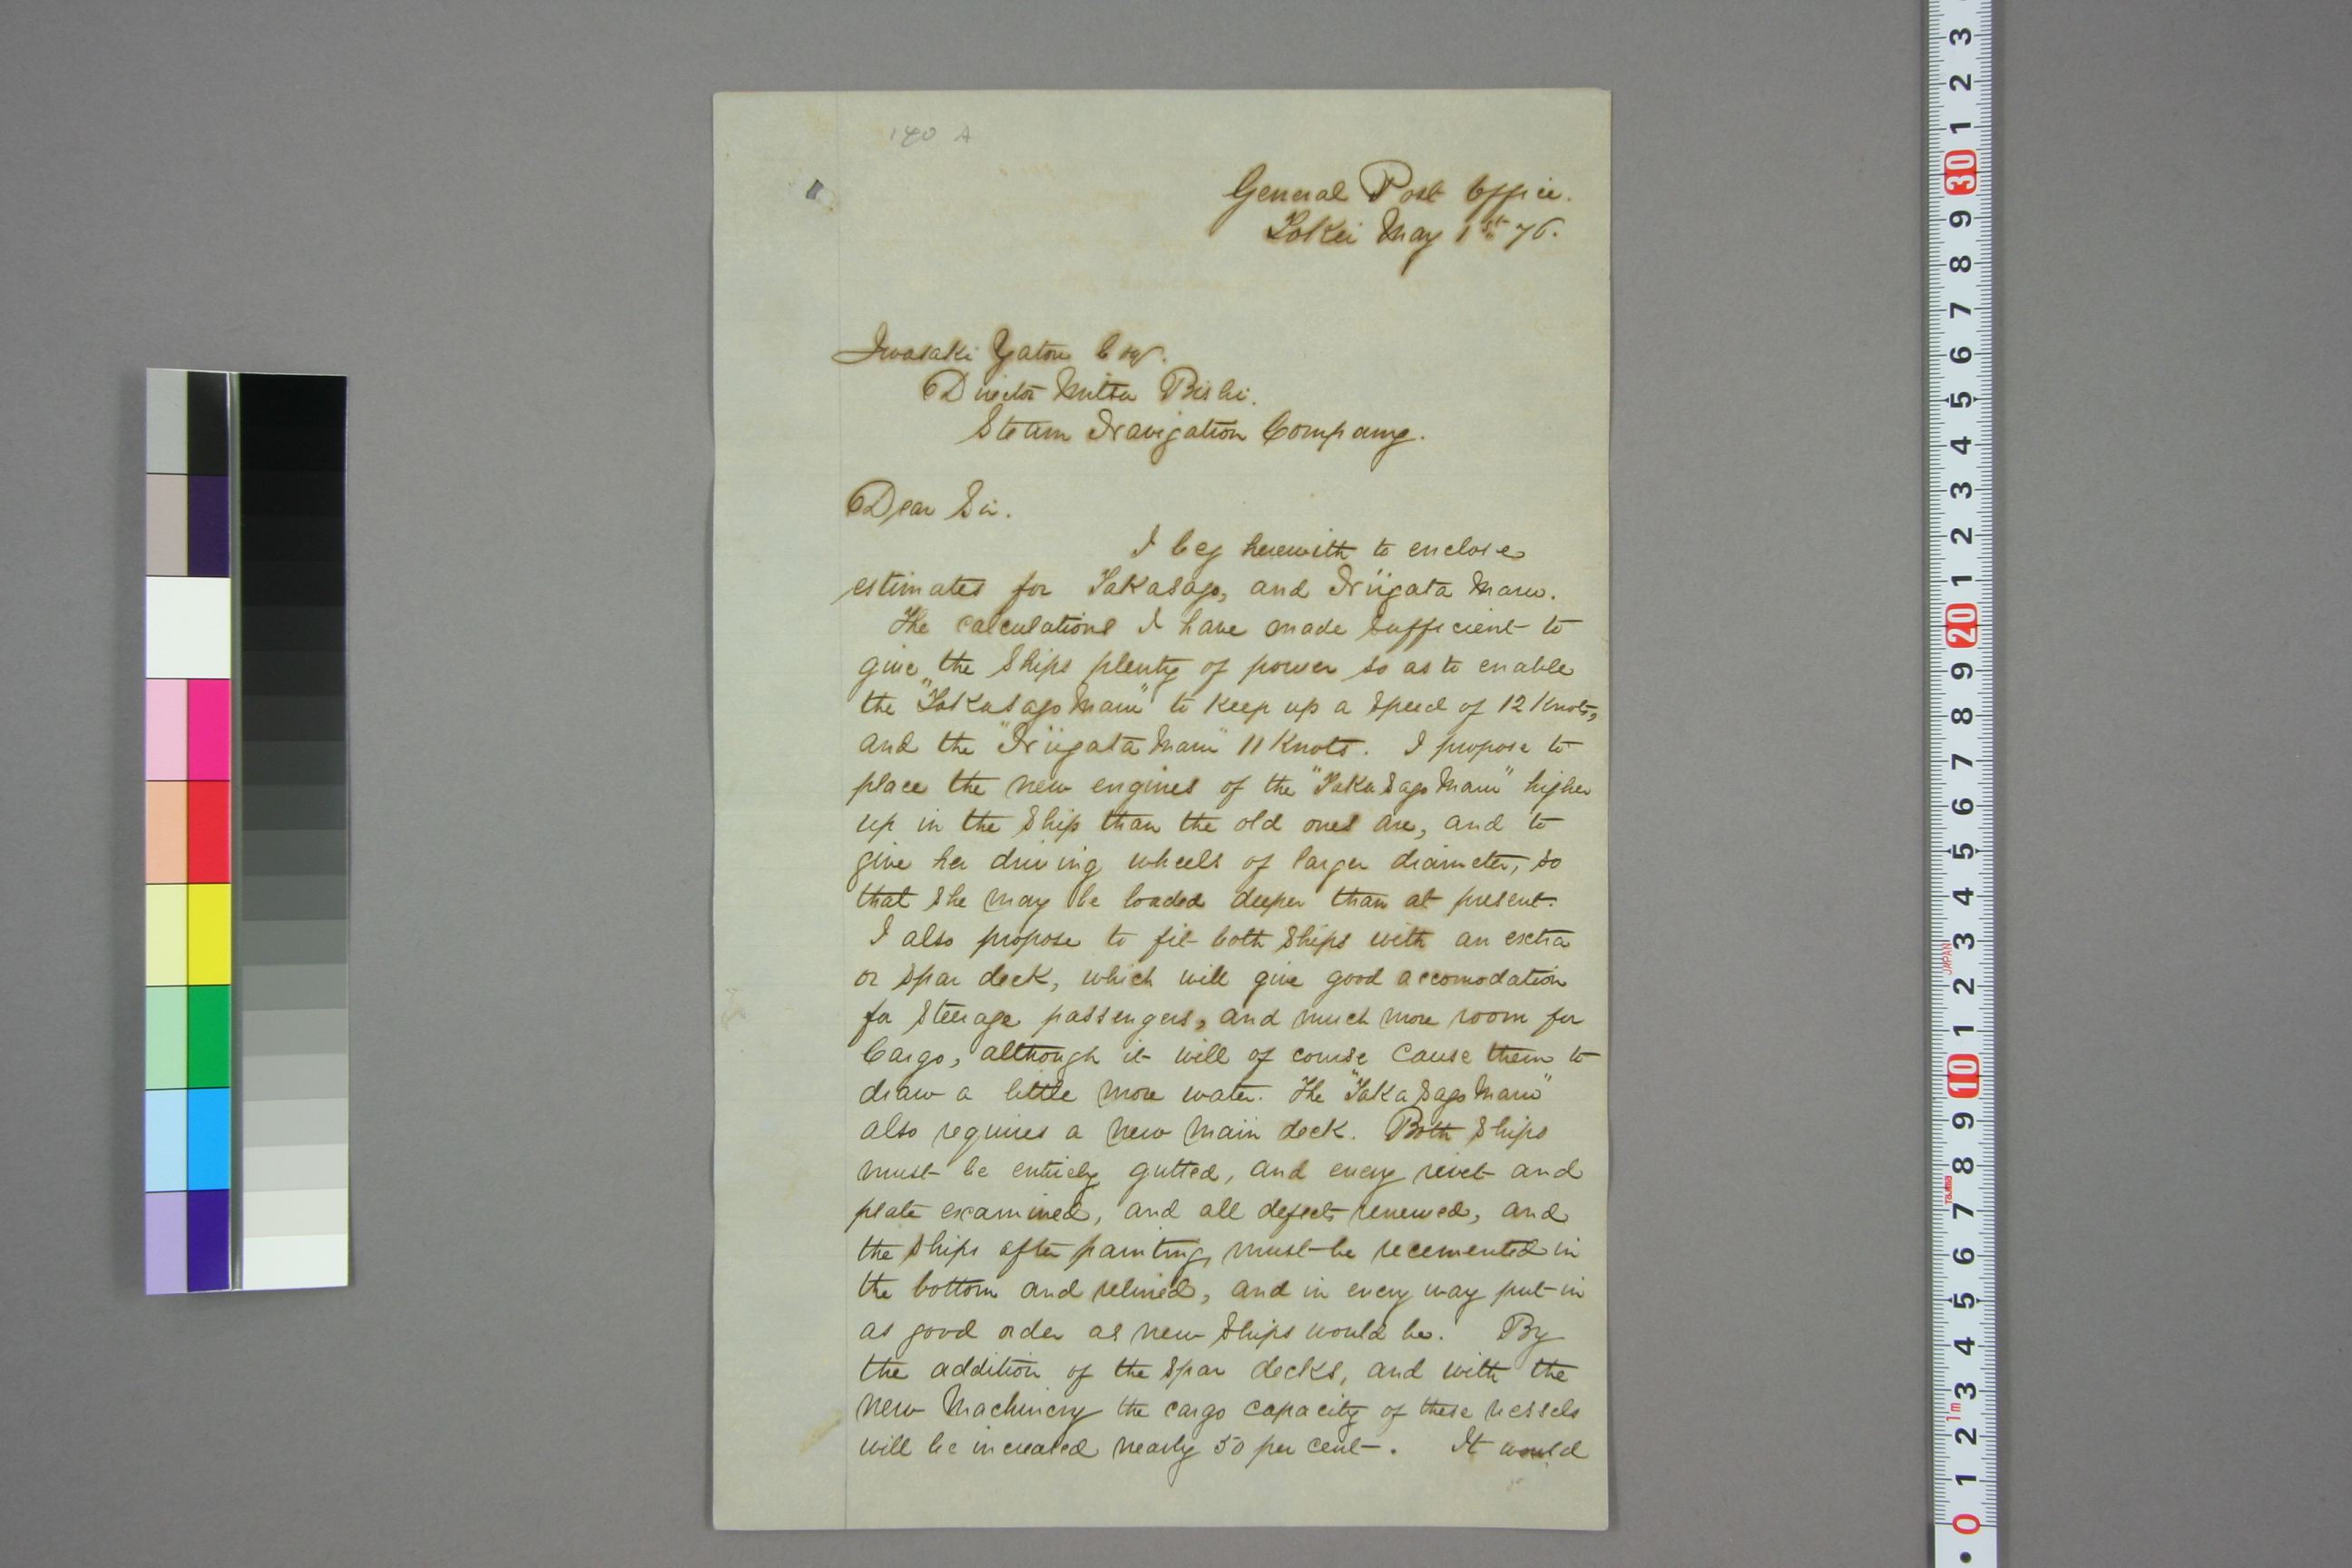 180 A
General Post Office.
Tokei May 1st 76.
Iwasaki Yataro Esqr.
Director Mitsu Bishi.
Steam Navigation Company.
Dear Sir.
I beg herewith to enclose
estimates for Takasago, and Niigata Maru.
The calculations I have made sufficient to
give the Ships plenty of power so as to enable
the "Takasago Maru" to keep up a Speed of 12 Knots,
and the "Niigata Maru" 11 Knots. I propose to
place the new engines of the "Takasago Maru" higher
up in the Ship than the old ones are, and to
give her driving wheels of larger diameter, so
that she may be loaded deeper than at present.
I also propose to fit both Ships with an extra
or spar deck, which will give good accomodation
for Steerage passengers, and much more room for
Cargo, although it will of course cause them to
draw a little more water. The "Takasago Maru"
also requires a new main deck. Both Ships
must be entirely gutted, and every rivet and
plate examined, and all defects renewed, and
the Ships after painting, must be recemented in
the bottom and relined, and in every way put in
as good order as new Ships would be. By
the addition of the spar decks, and with the
new Machinery the cargo capacity of these vessels
will be increased nearly 50 per cent. It would
3
2
1
30
9
8
7
6
5
4
3
2
1
20
9
8
7
6
5
4
3
JAPAN
2
1
10
9
8
Tajima
7
6
5
4
3
1m
2
1
0